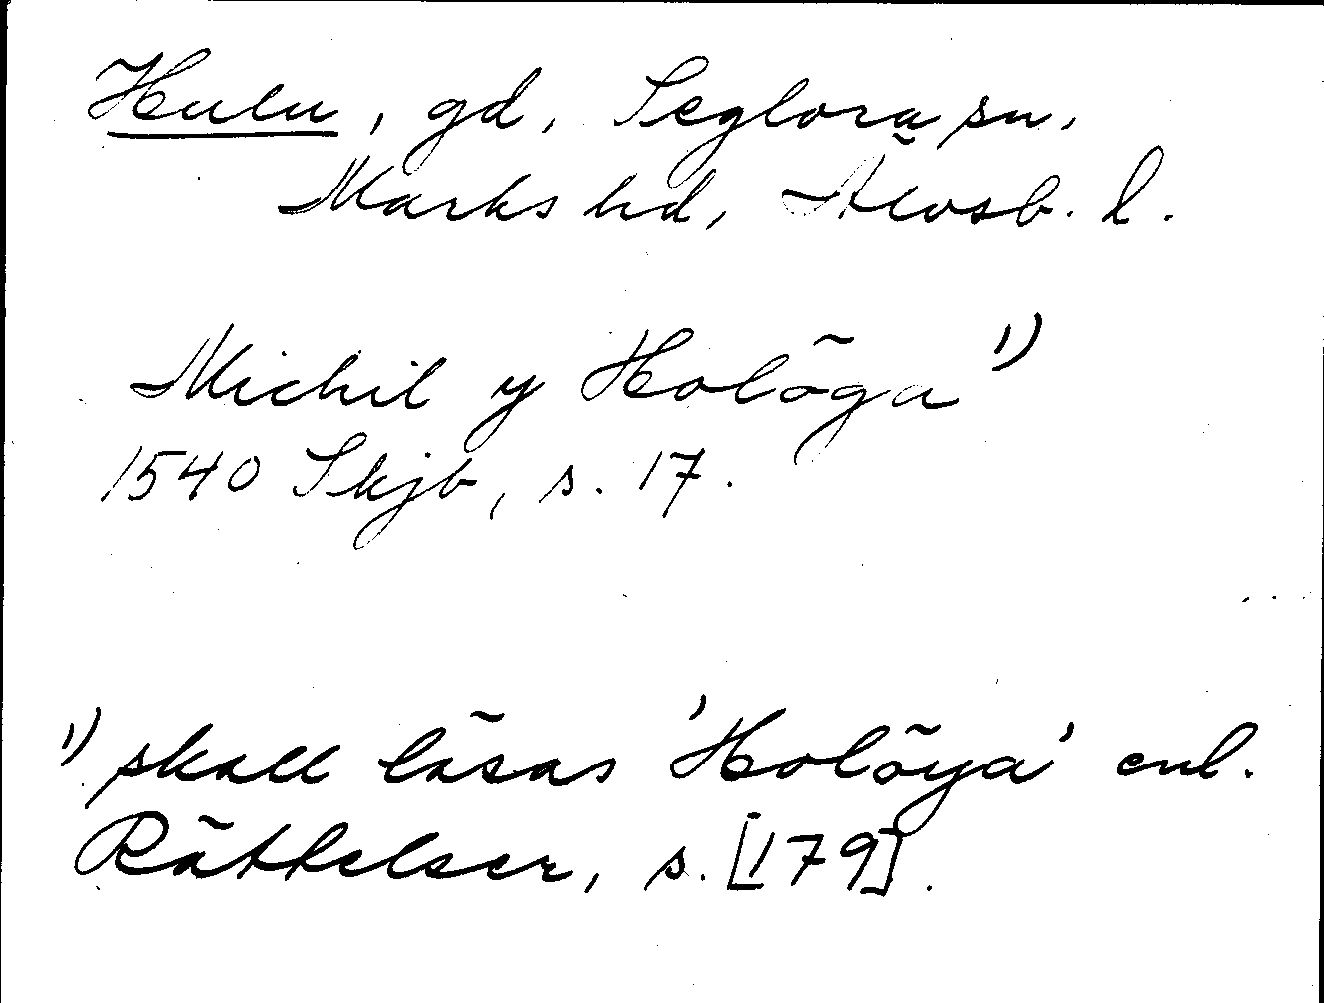 Hulu, gd, Seglora sn,
Marks hd, Älvsb. l.
Michil y Holöga 1)
1540 Skjb, s. 17.
1) skall läsas 'Holöya' enl.
Rättelser, s. [179].